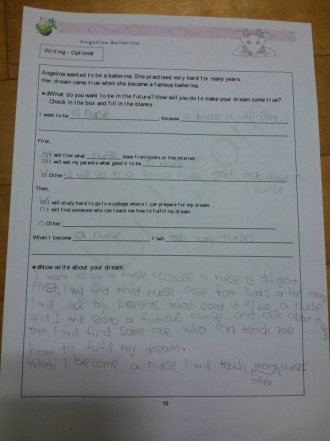 Angelina Ballerina
Writing - Optional
Angelina wanted to be a ballerina. She practised very hard for many years.
Her dream came true when she became a famous ballerina.
What do you want to be in the future? How will you do to make your dream come true?
Check in the box and fill in the blanks.
I want to be a nurse because a nurse is diligent.
First,
I will find what nurse does from books or the internet.
I will ask my parents what good it to be
Other I will go to a and ask about a
nurse
Then,
I will study hard to go to a college where I can prepare for my dream.
I will find someone who can teach me how to fulfill my dream.
Other
When I become a nurse, I will teach many nurses
Now write about your dream.
I want to be a nurse because a nurse is diligent.
First, I will find what nurse dose from books or the
I will ask my parents what good it to be a nurse
and I will go to a famous nurse and ask about a
Then, I will find some one who can teach me
how to fulfill my dream.
When I become a nurse, I will teach many nurses
other